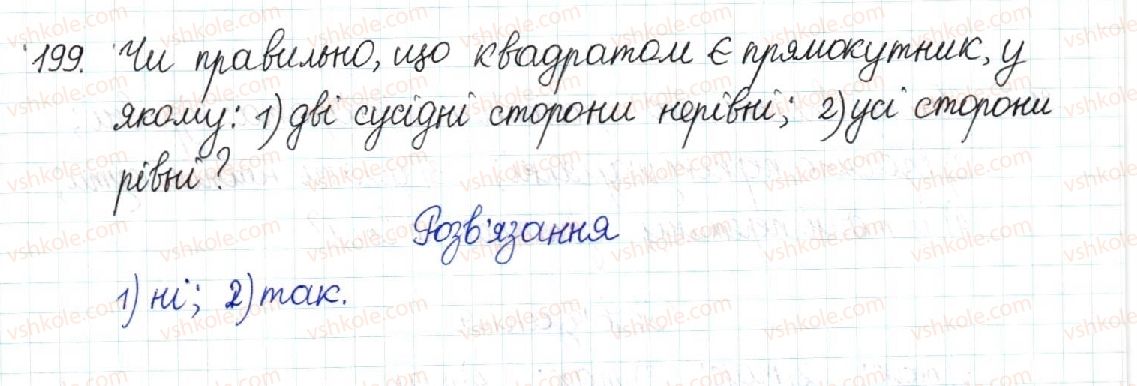 199. Чи правильно, що квадратом є прямокутник, у
якому: 1) дві сусідні сторони нерівні; 2) усі сторони
рівні?
Розв'язання
1) ні; 2) так.